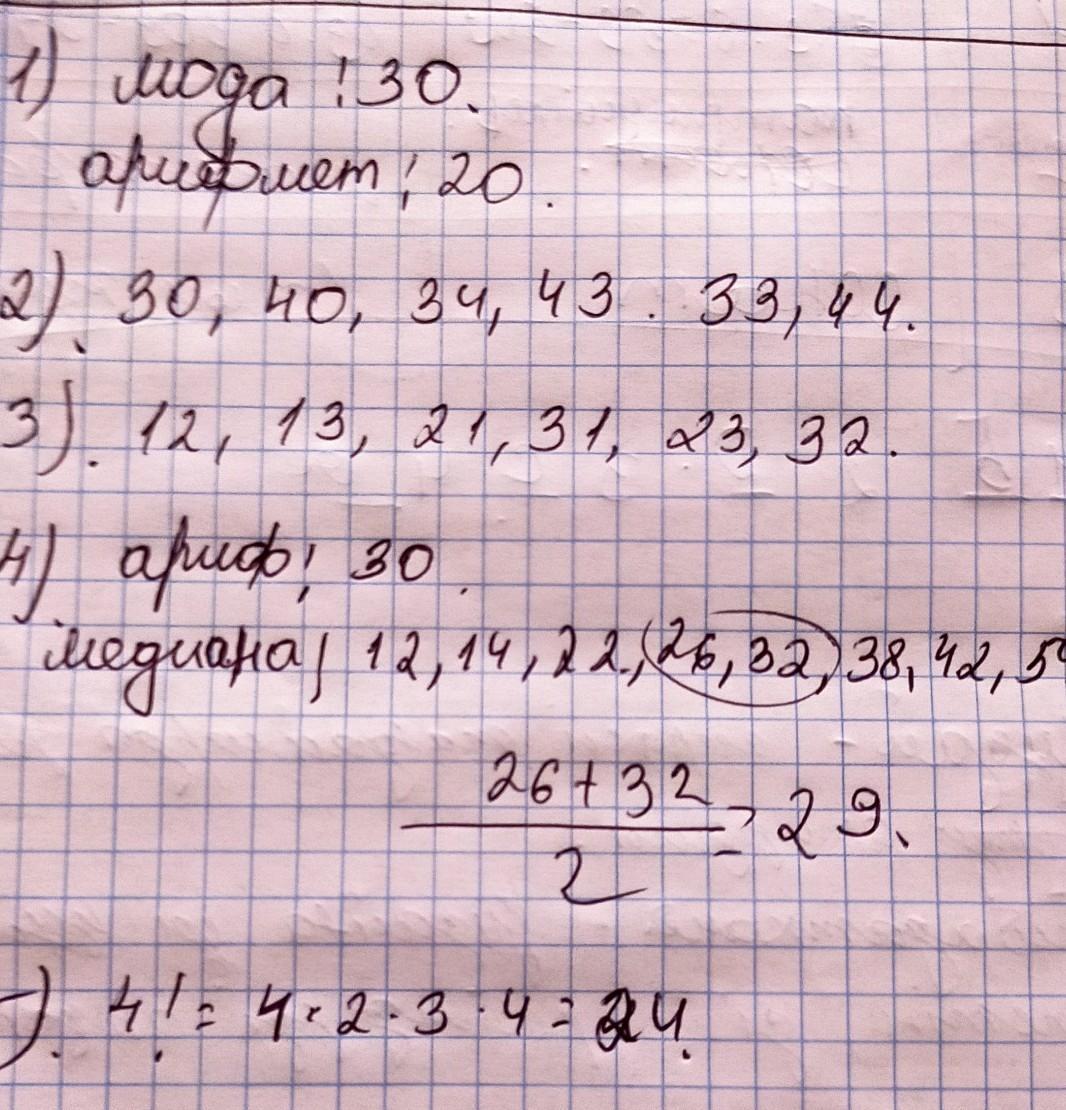 1) мода : 30.
арифмет : 20.
2). 30, 40, 34, 43. 33, 44.
3). 12, 13, 21, 31, 23, 32.
4) ариф: 30.
медиана: 12, 14, 22, 26, 32, 38, 42, 5
26 + 32
= 29.
2
). 4! = 4 · 2 · 3 · 4 = 24.